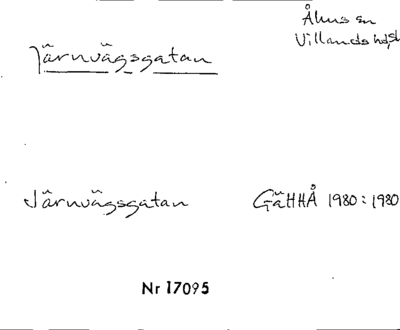 Åhus sn
Villands hd, Sk
Järnvägsgatan
Järnvägsgatan GäHHÅ 1980:1980
Nr 17095